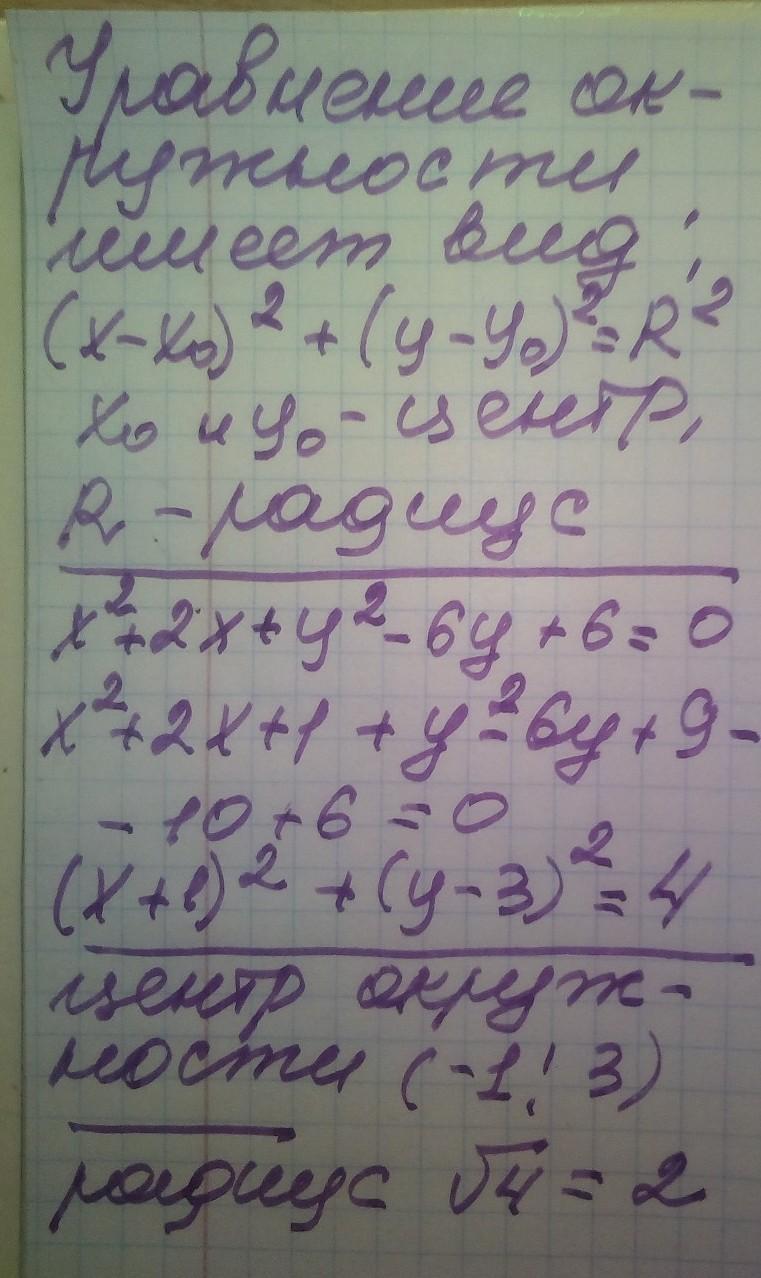 Уравнение ок-
ружности
имеет вид:
(x-x₀)² + (y-y₀)² = R²
x₀ и y₀ - центр,
R - радиус
x²+2x+y²-6y+6=0
x²+2x+1+y²-6y+9-
-10+6=0
(x+1)²+(y-3)²=4
центр окруж-
ности (-1; 3)
радиус √4 = 2